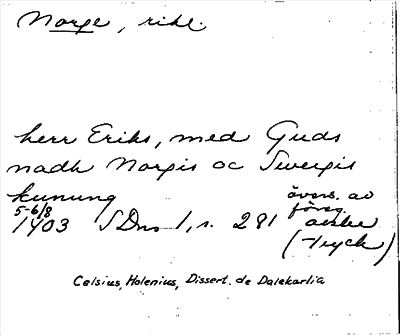 Norge, rike.
herr Eriks, med Guds
nadh Norgis oc Swergis
kunung
övers. av
5-6/8 försg.
1403 SDns 1, s. 281 avskr
(Tryck)
Celsius, Holenius, Dissert. de Dalekarlia